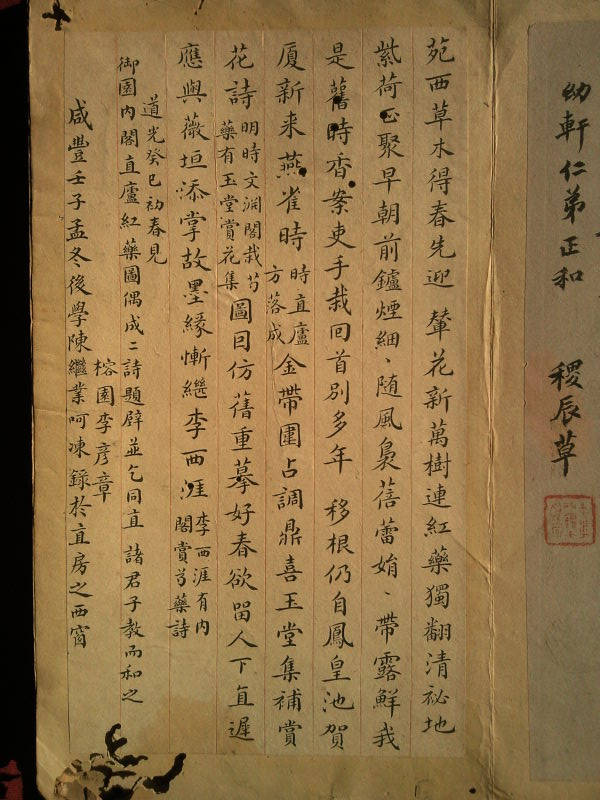 幼軒仁弟正和 稷辰草
苑西草木得春先迎 輦花新萬樹連紅藥獨翻清祕地
紫荷正聚早朝前鑪煙細、隨風裊蓓蕾娟、帶露鮮我
是舊時香案吏手栽回首別多年 移根仍自鳳皇池賀
厦新来燕雀時 時直廬方落成 金帶圍占調鼎喜玉堂集補賞
花詩 明時文淵閣栽芍藥有玉堂賞花集 圖因仿舊重摹好春欲留人下直遲
應與薇垣添掌故墨緣慚繼李西涯 李西涯有內閣賞芍藥詩
道光癸巳初春見
御園內閣直廬紅藥圖偶成二詩題辟並乞同直 諸君子教而和之
榕園李彥章
咸豐壬子孟冬後學陳繼業呵凍錄於直房之西窗